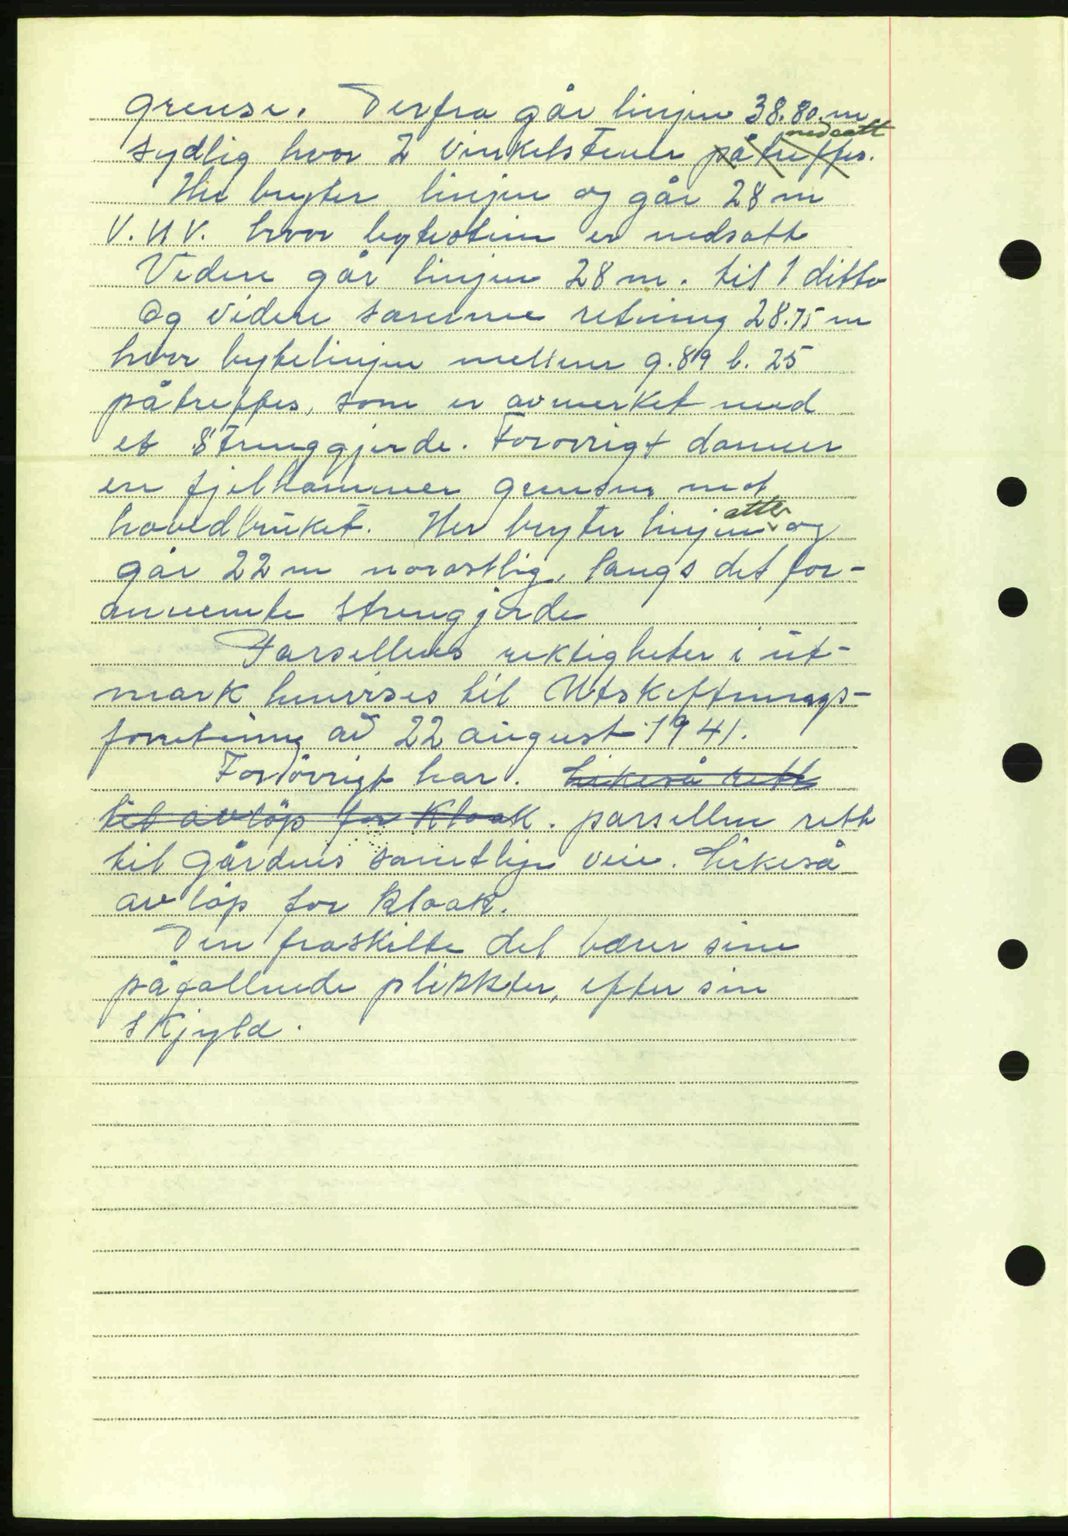 grense. Derfra går linjen 38.80 m
nedsatt
sydlig hvor 2 Vinkelstener påtreffes.
Her bryter linjen og går 28 m
V.N.V. hvor bytesten er nedsatt
Videre går linjen 28 m. til 1 ditto
Og videre samme retning 28.75 m
hvor bytelinjen mellem g. 89 b. 25
påtreffes, som er avmerket med
et 8 strenggjerde. Forøvrigt danner
en fjelhammer grensen mot
atter
hovedbruket. Her bryter linjen og
går 22 m norostlig, langs det for-
annevnte strengjerde
Parsellens rektigheter i ut-
mark henvises til Utskiftnings-
forretning av 22 august 1941.
Forøvrigt har. Likeså rett
til avløp for Kloak. parsellen rett
til gårdens samtlige veie. Likeså
avløp for kloak.
Den fraskilte del bærer sine
pågallende plikkter, efter sin
skjyld.